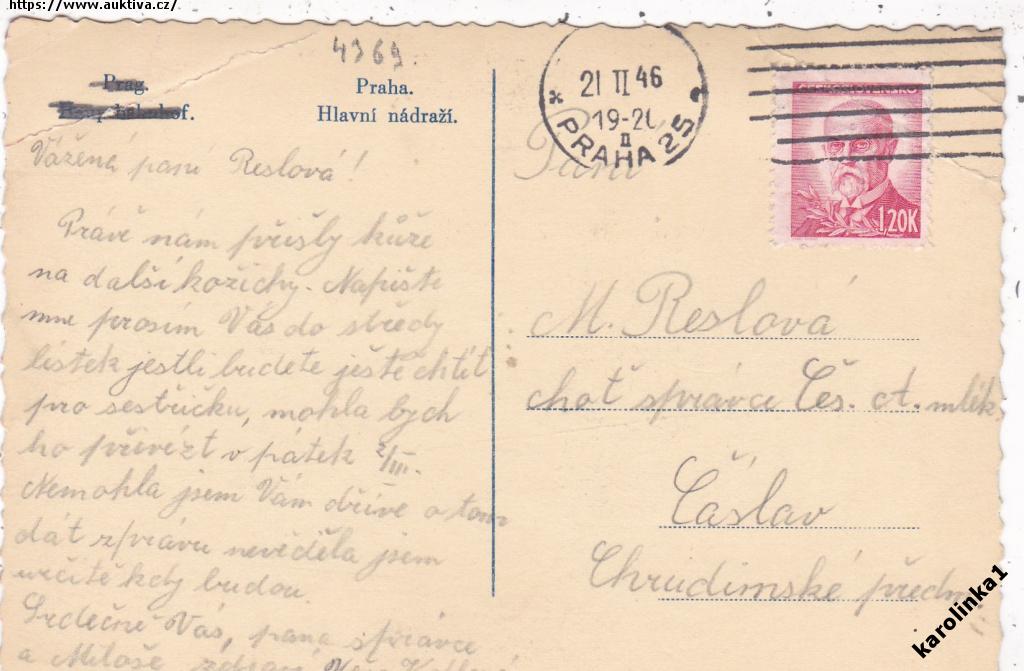 https://www.auktiva.cz/
4369.
Prag.
Hauptbahnhof.
Praha.
Hlavní nádraží.
21 II 46
19-20
II
PRAHA 25
ČESKOSLOVENSKO
1,20K
Vážená paní Reslová!
Právě nám přišly kůže
na další kožichy. Napište
mne prosím Vás do středy
lístek jestli budete ještě chtít
pro sestřičku, mohla bych
ho přivézt v pátek 2/III.
Nemohla jsem Vám dříve o tom
dát zprávu nevěděla jsem
určitě kdy budou.
Srdečně Vás, pana správce
a Miloše zdraví
Paní
M. Reslová
choť správce Čes. ct. mlék
Čáslav
Chrudimské předm
karolinka1